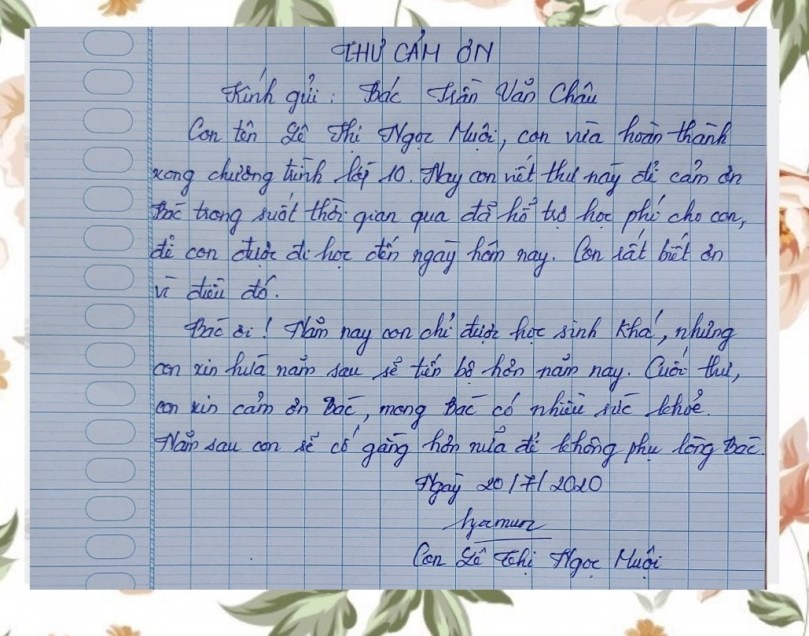 THƯ CẢM ƠN
Kính gửi : Bác Trần Văn Châu
Con tên Lê Thị Ngọc Muội, con vừa hoàn thành
xong chương trình lớp 10. Nay con viết thư này để cảm ơn
Bác trong suốt thời gian qua đã hổ trợ học phí cho con,
để con được đi học đến ngày hôm nay. Con rất biết ơn
vì điều đó.
Bác ơi ! Năm nay con chỉ được học sinh khá, nhưng
con xin hứa năm sau sẽ tiến bộ hơn năm nay. Cuối thư,
con xin cảm ơn Bác, mong Bác có nhiều sức khoẻ.
Năm sau con sẽ cố gắng hơn nữa để không phụ lòng Bác.
Ngày 20/7/2020
Con Lê Thị Ngọc Muội